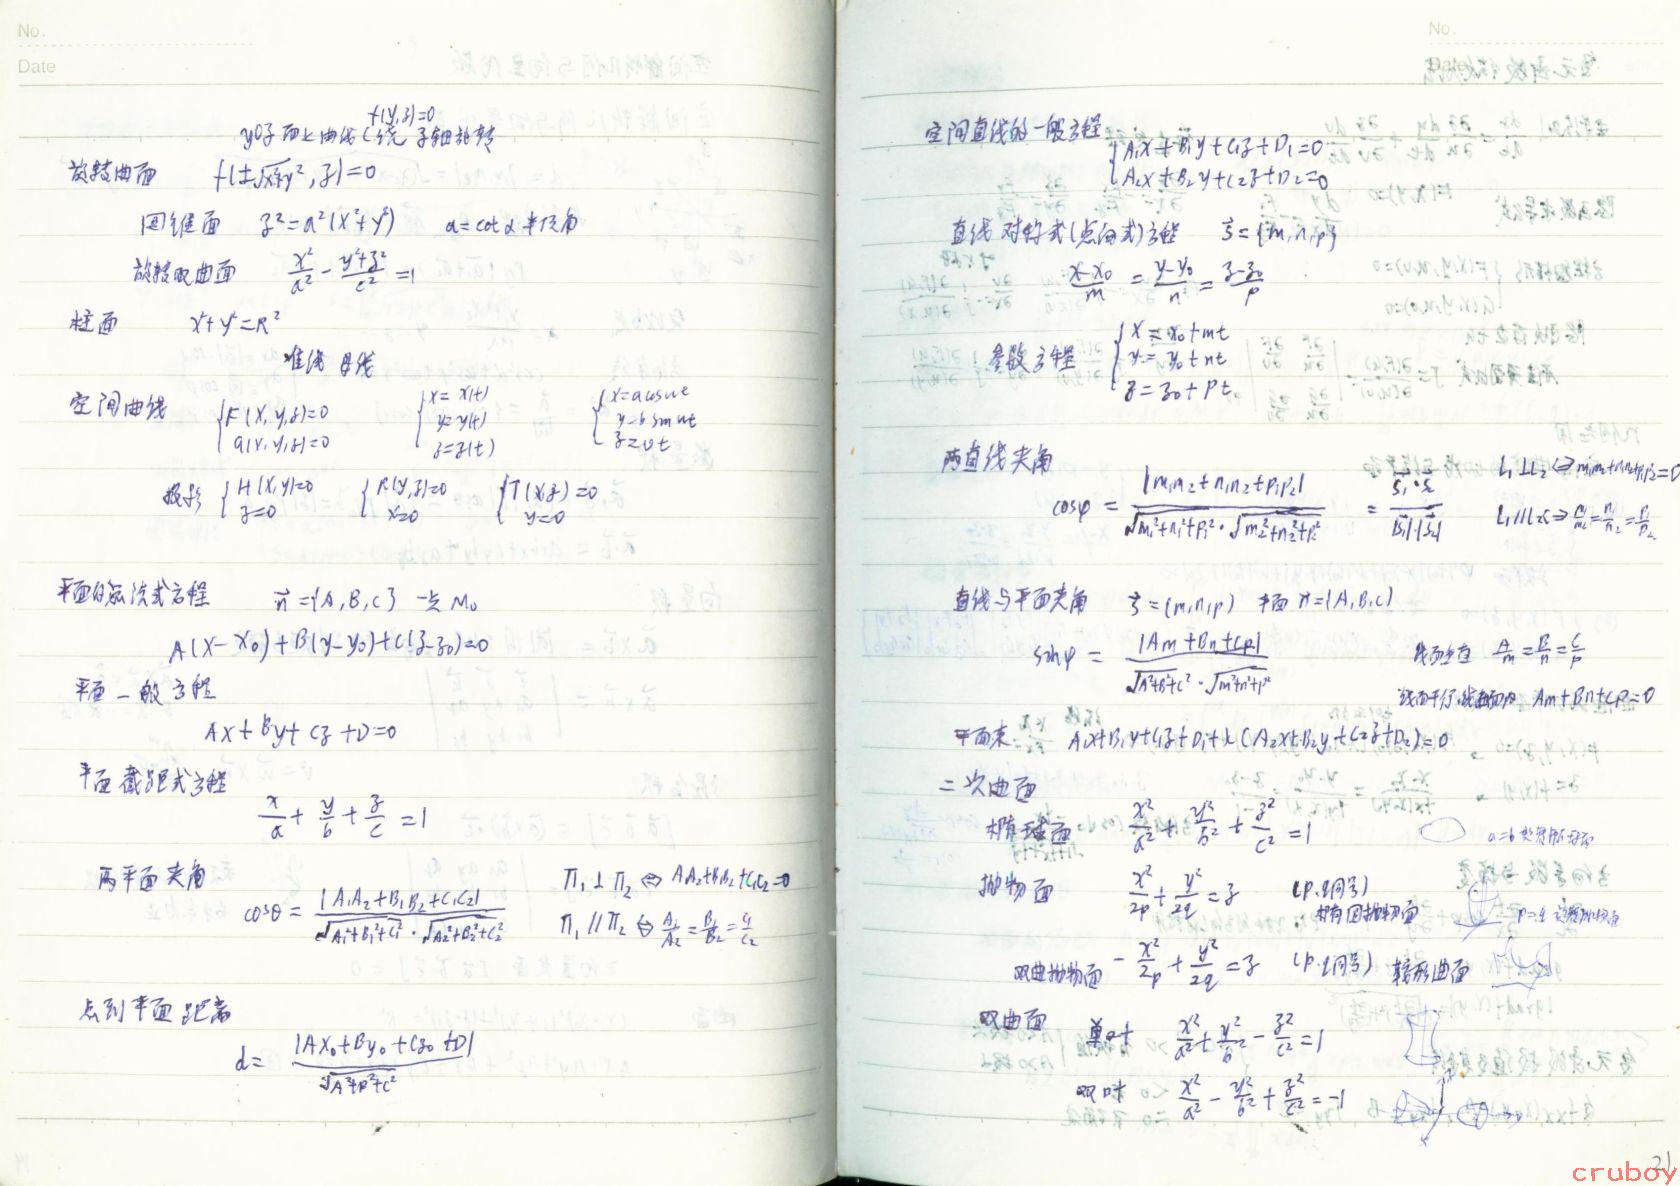 No.
Date
f(y,z)=0
yOz面上曲线C绕 z轴旋转
旋转曲面 f(±√x²+y², z)=0
圆锥面 z²=a²(x²+y²) a=cotα 半顶角
旋转双曲面 x²/a² - (y²+z²)/c² =1
柱面 x²+y²=R²
准线 母线
空间曲线 { F(x,y,z)=0 G(x,y,z)=0 { x=x(t) y=y(t) z=z(t) { x=acosωt y=bsinωt z=vt
投影 { H(x,y)=0 z=0 { R(y,z)=0 x=0 { T(x,z)=0 y=0
平面的点法式方程 n⃗={A,B,C} 一点 M₀
A(x-x₀)+B(y-y₀)+C(z-z₀)=0
平面一般方程
Ax+By+Cz+D=0
平面截距式方程
x/a + y/b + z/c =1
两平面夹角
cosθ= |A₁A₂+B₁B₂+C₁C₂| / √A₁²+B₁²+C₁² · √A₂²+B₂²+C₂²
Π₁⊥Π₂ ⇔ A₁A₂+B₁B₂+C₁C₂=0
Π₁//Π₂ ⇔ A₁/A₂=B₁/B₂=C₁/C₂
点到平面距离
d= |Ax₀+By₀+Cz₀+D| / √A²+B²+C²
No.
Date
空间直线的一般方程
{ A₁x+B₁y+C₁z+D₁=0
A₂x+B₂y+C₂z+D₂=0
直线对称式(点向式)方程 s⃗={m,n,p}
(x-x₀)/m = (y-y₀)/n = (z-z₀)/p
参数方程 { x=x₀+mt
y=y₀+nt
z=z₀+pt
两直线夹角
cosφ= |m₁m₂+n₁n₂+p₁p₂| / √m₁²+n₁²+p₁² · √m₂²+n₂²+p₂² = s⃗₁·s⃗₂ / |s⃗₁|·|s⃗₂|
L₁⊥L₂ ⇔ m₁m₂+n₁n₂+p₁p₂=0
L₁//L₂ ⇔ m₁/m₂=n₁/n₂=p₁/p₂
直线与平面夹角 s⃗=(m,n,p) 平面 n⃗=(A,B,C)
sinφ= |Am+Bn+Cp| / √A²+B²+C² · √m²+n²+p²
线面垂直 A/m=B/n=C/p
线面平行,线在面内 Am+Bn+Cp=0
平面束 A₁x+B₁y+C₁z+D₁+λ(A₂x+B₂y+C₂z+D₂)=0
二次曲面
椭球面 x²/a² + y²/b² + z²/c² =1 a=b
抛物面 x²/2p + y²/2q =z (p.q同号)
椭圆抛物面 p=q
双曲抛物面 -x²/2p + y²/2q =z (p.q同号) 鞍形曲面
双曲面 单叶 x²/a² + y²/b² - z²/c² =1
双叶 x²/a² - y²/b² + z²/c² =-1
21
cruboy